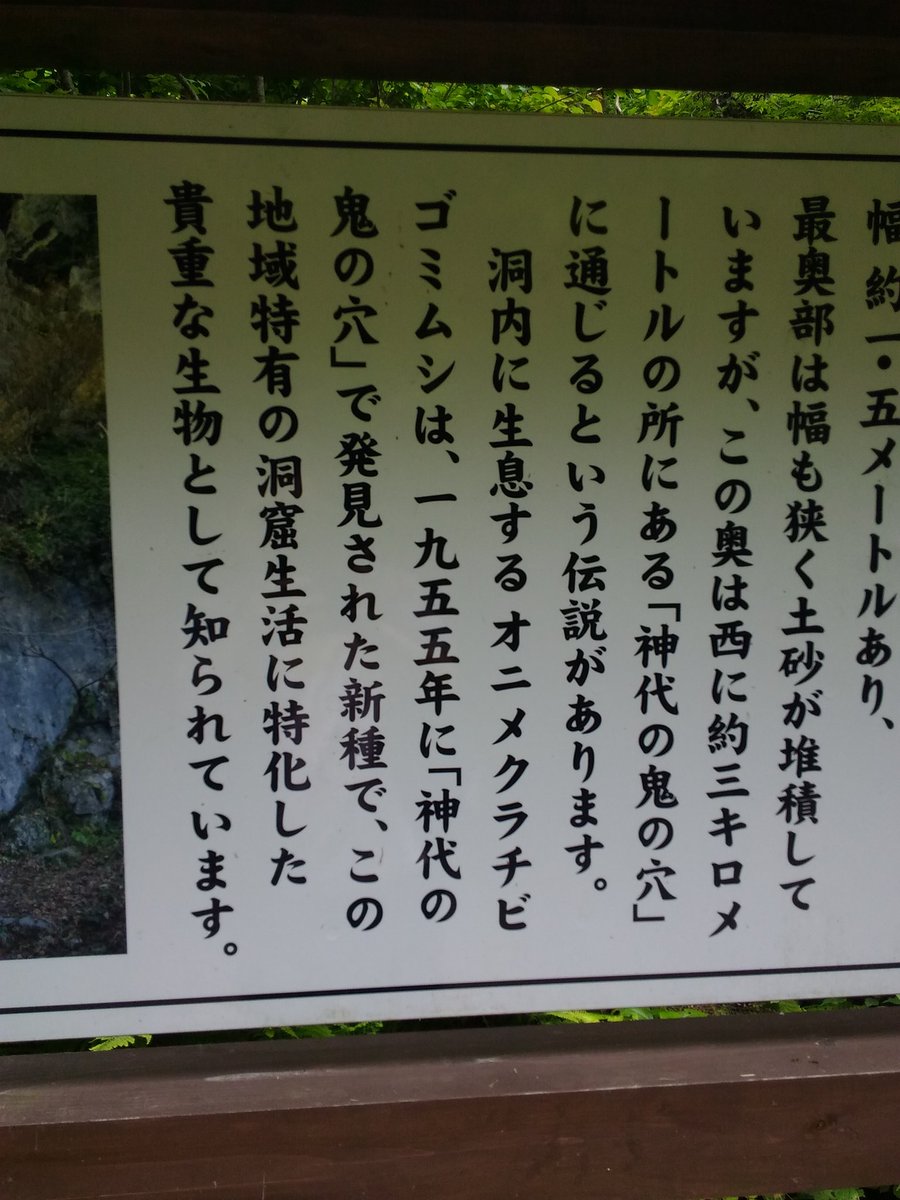 幅約一・五メートルあり、
最奥部は幅も狭く土砂が堆積して
いますが、この奥は西に約三キロメ
ートルの所にある「神代の鬼の穴」
に通じるという伝説があります。
洞内に生息するオニメクラチビ
ゴミムシは、一九五五年に「神代の
鬼の穴」で発見された新種で、この
地域特有の洞窟生活に特化した
貴重な生物として知られています。